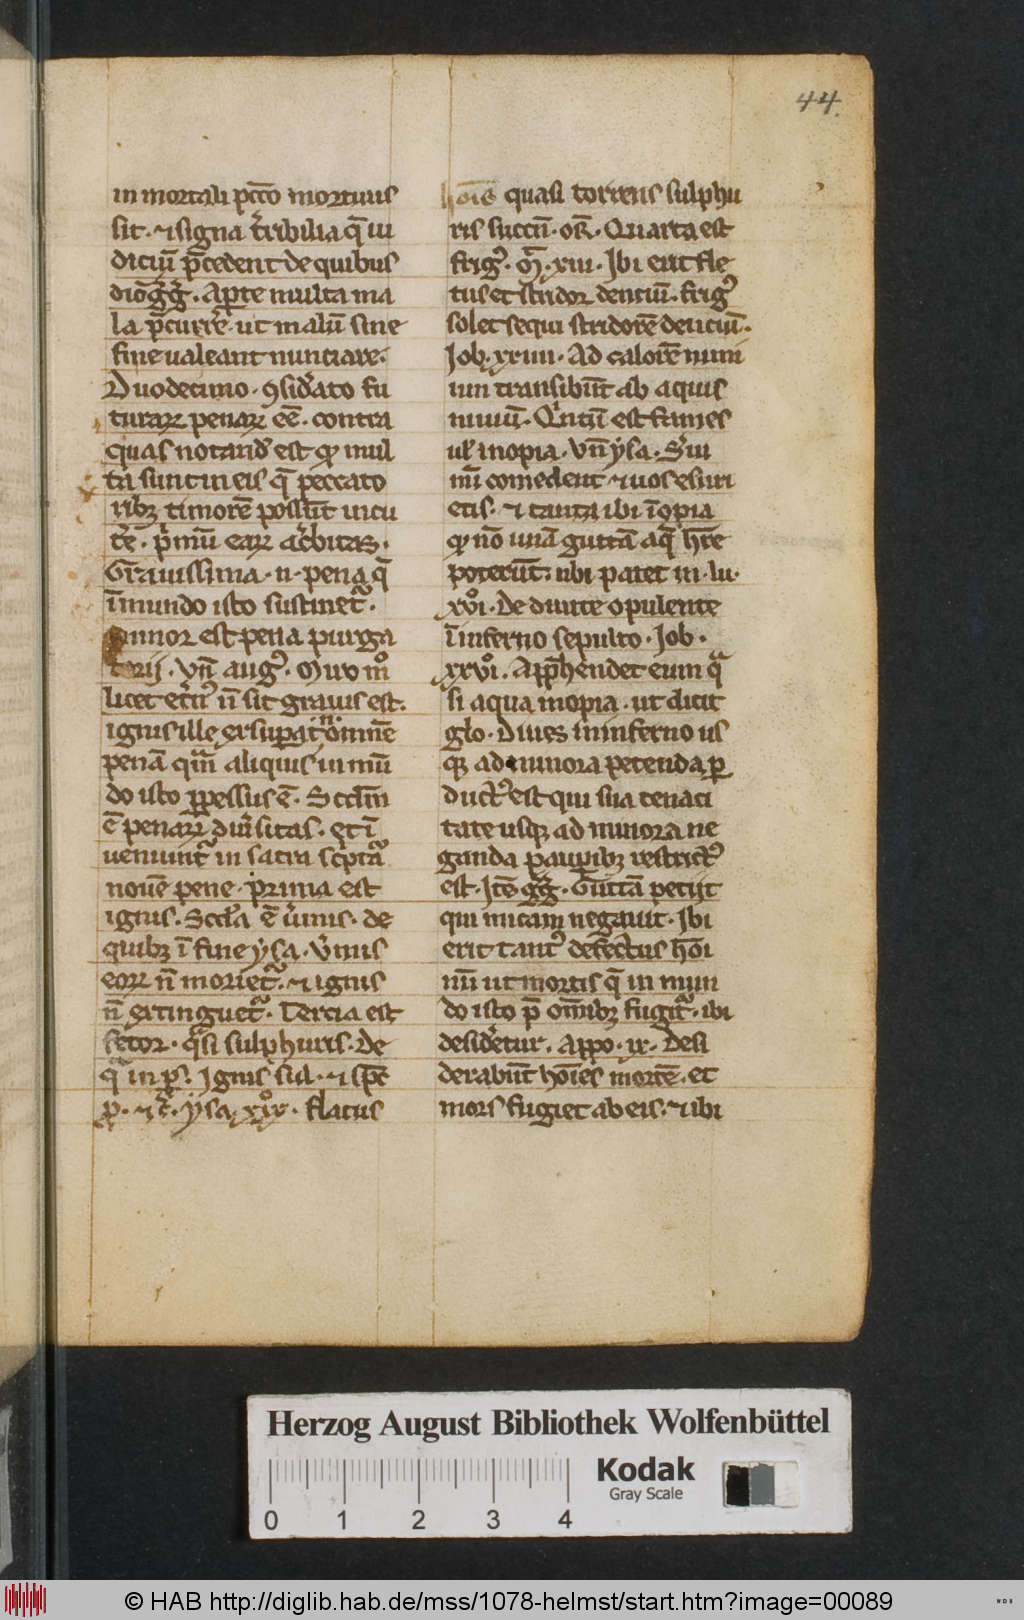 44.
in mortali pccō mortuus
sit. ⁊ signa t̓ribilia q̄ iu
diciū p̄cedent de quibus
dic̄ g̅g̅. Aꝑte multa ma
la p̄curre̓ ut malū sine
fine ualeant nunciare.
Duodecimo. ꝯsid̓ato fu
turaꝝ penaꝝ eē. contra
quas notand̓ est ꝙ mul
ta sunt in eis q̄ peccato
ribꝫ timorē possūt incu
te̓. p̓mū eaꝝ ac̓bitas.
Grauissima .n. pena q̄
ī mundo isto sustinet᷑.
minor est pena purga
torij. Vn̄ augꝰ. Miro mͦ
licet et̓nꝰ n̄ sit grauis est
ignis ille exsuperat .n. omnē
penā qm̄ aliquis in mū
do isto ꝑpessus ē. Sccd̄m
ē penaꝝ diu̓sitas. et ī
ueniunt᷑ in sacra sc̓ptᷓa
nouē pene. prima est
ignis. Sccd̓a ē u̓mis. de
quibꝫ ī fine ysa. V̓mis
eoꝝ n̄ moriet᷑. ⁊ ignis
n̄ extinguet᷑. Tercia est
fetor. qᷓsi sulphuris. De
qᷓ in ps. Ignis sul. ⁊ sp̄c
ꝓ. ⁊c̓. ysa. xixͦ. flatus
hoīs quasi torrens sulphu
ris succn̄. or̄. Quarta est
frigꝰ. M̄. xiii. Ibi erit fle
tus et stridor dentiū. frigꝰ
solet sequi stridorē denciū.
Job. xxiiii. Ad calorē nimi
um transibūt ab aquis
niuiū. Q̓ntū est fames
ul̓ inopia. Vn̄ ysa. S̓ui
mī comedent ⁊ uos esuri
etis. ⁊ tanta ibi īopia
ꝙ nō unā guttā aq̄ hr̄e
poterūt. ubi patet in. lu.
xvͦi. De diuite opulente
ī inferno sepulto. Job.
xxvͦi. App̄hendet eum qᷓ
si aqua inopia. ut dicit
glo. Diues in inferno us
qꝫ ad minora petenda ꝑ
ductꝰ est qui sua tenaci
tate usqꝫ ad minora ne
ganda pauꝑibꝫ restrictꝰ
est. Itē g̅g̅. Guttā petijt
qui micam negauit. Ibi
erit tantꝰ defectus hoī
nū ut mortis q̄ in mun
do isto p̄ om̄ibꝫ fugit᷑. ibi
desid̓etur. Appo. ix. Desi
derabūt hoīes mortē. et
mors fugiet ab eis. ⁊ ibi
Herzog August Bibliothek Wolfenbüttel
Kodak
Gray Scale
0 1 2 3 4
© HAB http://diglib.hab.de/mss/1078-helmst/start.htm?image=00089